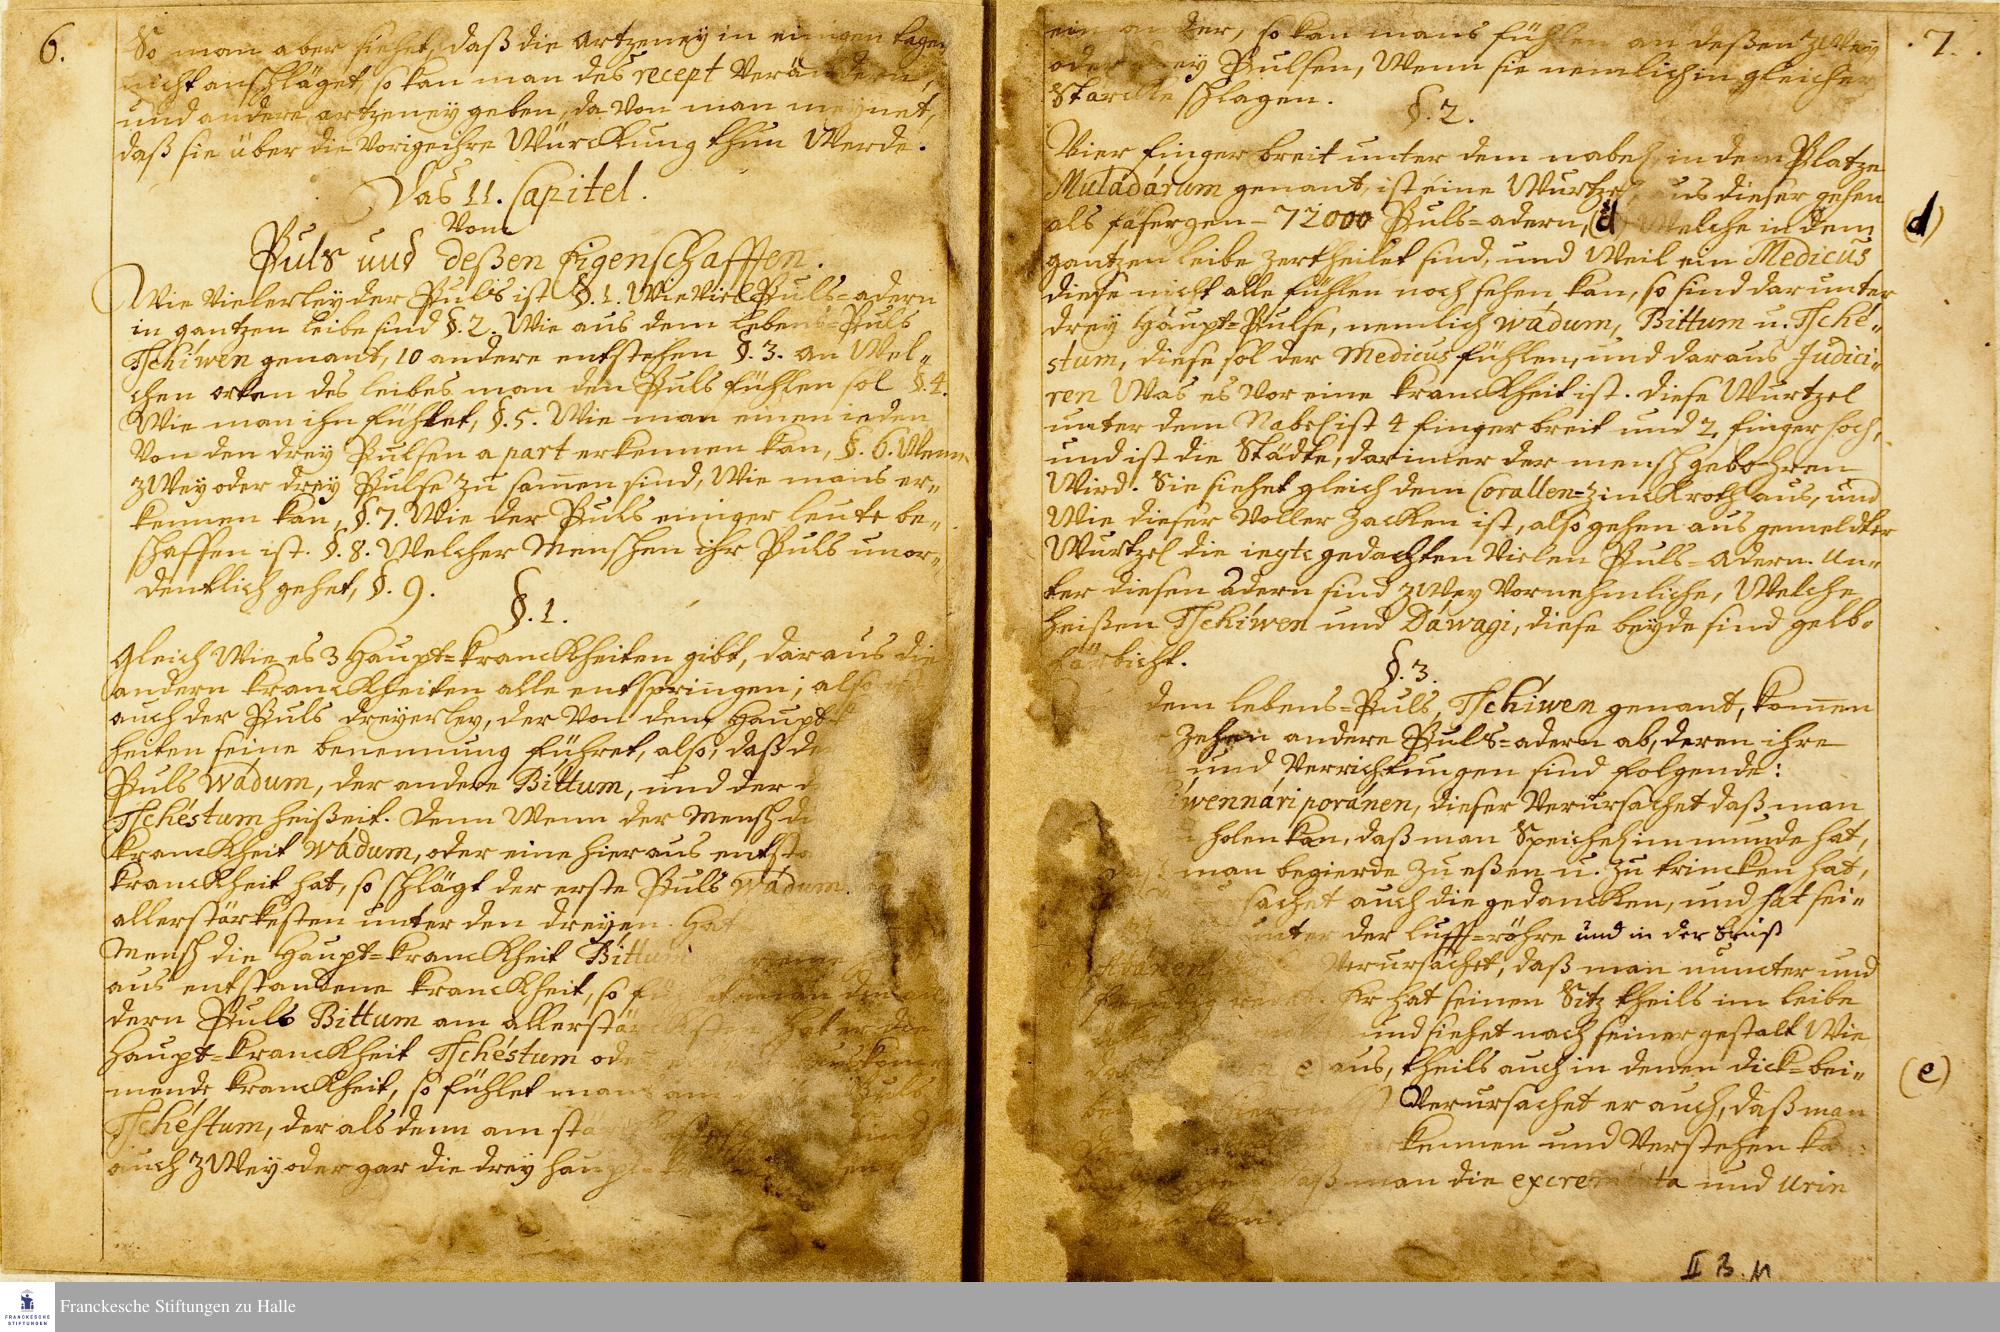 6.
So man aber siehet, daß die artzeney in einigen tagen
nicht anschläget, so kan man des recept Verändern,
und andere artzeney geben, da von man meynet,
daß sie über die vorige ihre Würckung thun Werde.
Das 11. Capitel.
Von
Puls und deßen Eigenschafften.
Wie Vielerley der Puls ist §. 1. Wie Viel Puls=adern
in gantzen leibe sind §. 2. Wie aus dem lebens=Puls
Tschiwen genant, 10 andere entstehen §. 3. an Wel=
chen orten des leibes man den Puls fühlen sol §. 4.
Wie man ihn fühlet, §. 5. Wie man einen ieden
Von den drey Pulsen a part erkennen kan, §. 6. Wenn
zwey oder drey Pulse zu samen sind, Wie mans er=
kennen kan, §. 7. Wie der Puls einiger leute be=
schaffen ist. §. 8. Welcher Menschen ihr Puls unor=
dentlich gehet, §. 9.
§. 1.
Gleich Wie es 3 Haupt=kranckheiten gibt, daraus die
andern kranckheiten alle entspringen; also
auch der Puls dreyerley, der Von dem Haupt
heiten seine benennung führet, also, daß de
Puls Wádum, der andere Bittum, und der d
Tschéstum heißeit. Denn Wenn der Mensch di
kranckheit Wádum, oder eine hieraus entsta
kranckheit hat, so schlägt der erste Puls Wádum.
allerstärkesten unter den dreyen. Hat
Mensch die Haupt=kranckheit Bittum
aus entstandene kranckheit, so
dern Puls Bittum am allerstär hat er die
Haupt=kranckheit Tschéstum ode aus kom
mende kranckheit, so fühlet man am Puls
Tschéstum, der als denn am stä sind
auch zwey oder gar die drey haupt=
7.
ein ander, so kan mans fühlen an deßen zwey
oder drey Pulsen, Wenn sie nemlich in gleicher
Starcke schlagen.
§. 2.
Vier finger breit unter dem nabel, in dem Platze
Muladárum genant, ist eine Wurtzel, aus dieser gehen
als fäsergen - 72000 Puls=adern, (d) Welche in dem
(d)
gantzen leibe zertheilet sind, und Weil ein Medicus
diese nicht alle fühlen noch sehen kan, so sind darunter
drey Haupt=Pulse, nemlich wádum, Bittum u. Tsché=
stum, diese sol der Medicus fühlen, und daraus Judici=
ren Was es Vor eine kranckheit ist. diese Wurtzel
unter dem Nabel ist 4 finger breit und 2 finger hoch,
und ist die Städte, darinner der mensch gebohren
Wird. Sie siehet gleich dem Corallen=Zinckroth aus, und
Wie dieser Voller Zacken ist, also gehen aus gemeldter
Wurtzel die ietzt gedachten Vielen Puls=adern. Un=
ter diesen adern sind zwey Vornehmliche, Welche
heißen Tschiwen und Dáwagi, diese beyde sind gelb=
färbicht.
§. 3.
dem lebens=Puls, Tschiwen genant, komen
zehen andere Puls=adern ab, deren ihre
und Verrichtungen sind folgende:
iwennári poránen, dieser Verursachet daß man
holen kan, daß man Speichel im munde hat,
daß man begierde zu eßen u. zu trincken hat,
sachet auch die gedancken, und hat sei=
unter der lufft=röhre und in der brust
Abánen Verursachet, daß man munter und
freudig Er hat seinen Sitz theils im leibe
und siehet nach seiner gestalt Wie
(e) aus, theils auch in denen dick=bei=
(e)
Verursachet er auch, daß man
kennen und Verstehen ka
daß man die excrementa und urin
kan.
II B. 11
Franckesche Stiftungen zu Halle
FRANCKESCHE
STIFTUNGEN